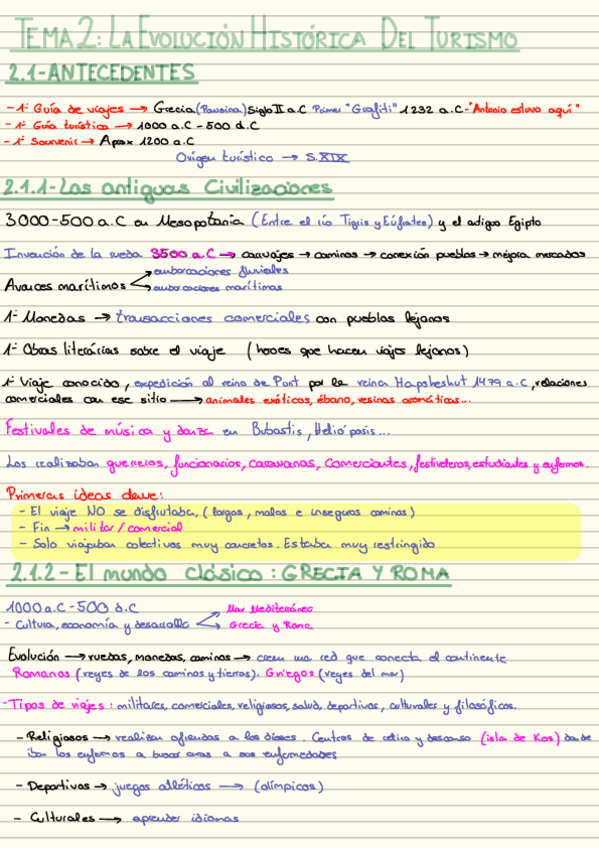 TEMA 2: LA EVOLUCIÓN HISTÓRICA DEL TURISMO
2.1-ANTECEDENTES
-1ª Guía de viajes → Grecia (Pausina) Siglo II a.C Primer "Grafiti" 1232 a.C -"Antonio estuvo aquí"
-1ª Guía turística → 1000 a.C - 500 d.C
-1º Souvenir → Aprox 1200 a.C
Origen turístico → S.XIX
2.1.1-Las antiguas Civilizaciones
3000-500 a.C en Mesopotania (Entre el río Tigris y Eúfrates) y el antiguo Egipto
Invención de la rueda 3500 a.C → carruajes → caminos → conexión pueblos → mejora mercados
Avances marítimos embarcaciones fluviales
embarcaciones marítimas
1ª Monedas → transacciones comerciales con pueblos lejanos
1ª Obras literárias sobre el viaje (heroes que hacen viajes lejanos)
1º Viaje conocido, expedición al reino de Punt por la reina Hapsheshut 1479 a.C, relaciones
comerciales con ese sitio → animales exóticos, ébano, resinas aromáticas...
Festivales de música y danza en Bubastis, Heliópasis...
Los realizaban guerreros, funcionarios, caravanas, Comerciantes, festiveleros, estudiantes y enfermos.
Primeras ideas clave:
- El viaje NO se disfrutaba, (largos, malos e inseguros caminos)
- Fin → militar / comercial
- Solo viajaban colectivos muy concretos. Estaba muy restringido
2.1.2- El mundo clásico: GRECIA Y ROMA
1000 a.C - 500 d.C
- Cultura, economía y desarrollo Mar Mediterráneo
Grecia y Roma
Evolución → ruedas, monedas, caminos → crean una red que conecta el continente
Romanos (reyes de los caminos y tierras). Griegos (reyes del mar)
-Tipos de viajes: militares, comerciales, religiosos, salud, deportivos, culturales y filosóficos.
- Religiosos → realizan ofrendas a los dioses. Centros de retiro y descanso (isla de Kos) donde
iban los enfermos a buscar curas a sus enfermedades
- Deportivos → juegos atléticos → (olímpicos)
- Culturales → aprender idiomas